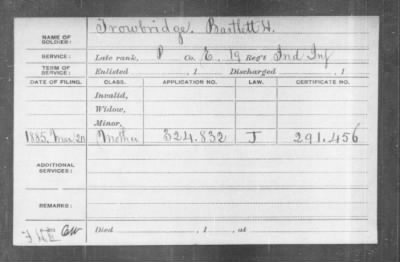 NAME OF SOLDIER: Trowbridge, Bartlett H.
SERVICE: Late rank, P Co. E, 19 Reg't Ind Inf
TERM OF SERVICE: Enlisted , 1 Discharged , 1
DATE OF FILING. CLASS. APPLICATION NO. LAW. CERTIFICATE NO.
Invalid,
Widow,
Minor,
1885, Mar 20 Mother 324.832 J 291.456
ADDITIONAL SERVICES:
REMARKS:
Died , 1 , at